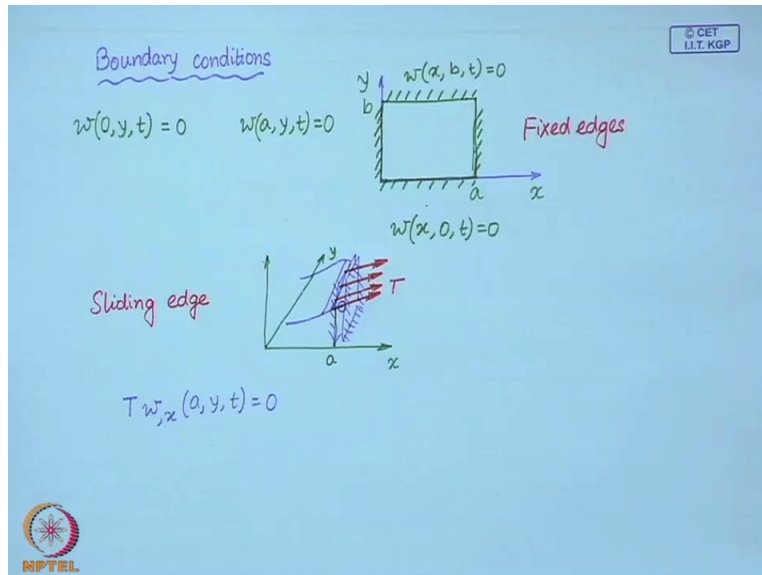 © CET
I.I.T. KGP
Boundary conditions
y
w(x, b, t)=0
b
w(0, y, t) = 0
w(a, y, t)=0
Fixed edges
a
x
w(x, 0, t)=0
y
Sliding edge
T
a
x
T w,x (a, y, t) = 0
NPTEL